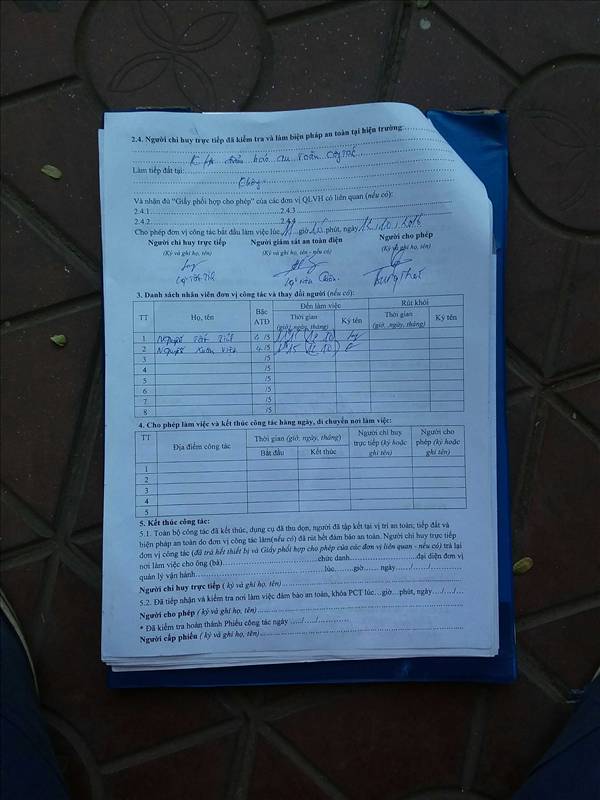 2.4. Người chỉ huy trực tiếp đã kiểm tra và làm biện pháp an toàn tại hiện trường:
đảm bảo an toàn
Làm tiếp đất tại:
Và nhận đủ "Giấy phối hợp cho phép" của các đơn vị QLVH có liên quan (nếu có):
2.4.1 2.4.3
2.4.2 2.4.4
Cho phép đơn vị công tác bắt đầu làm việc lúc 11 giờ phút, ngày
Người chỉ huy trực tiếp Người giám sát an toàn điện Người cho phép
(Ký và ghi họ, tên) (Ký và ghi họ, tên - nếu có) (Ký và ghi họ, tên)
3. Danh sách nhân viên đơn vị công tác và thay đổi người (nếu có):
TT Họ, tên Bậc ATĐ Đến làm việc Rút khỏi
Thời gian (giờ, ngày, tháng) Ký tên Thời gian (giờ, ngày, tháng) Ký tên
1 /5
2 4/5
3 /5
4 /5
5 /5
6 /5
7 /5
8 /5
4. Cho phép làm việc và kết thúc công tác hàng ngày, di chuyển nơi làm việc:
TT Địa điểm công tác Thời gian (giờ, ngày, tháng) Người chỉ huy trực tiếp (ký hoặc ghi tên) Người cho phép (ký hoặc ghi tên)
Bắt đầu Kết thúc
1
2
3
4
5
5. Kết thúc công tác:
5.1. Toàn bộ công tác đã kết thúc, dụng cụ đã thu dọn, người đã tập kết tại vị trí an toàn; tiếp đất và
biện pháp an toàn do đơn vị công tác làm(nếu có) đã rút hết đảm bảo an toàn. Người chỉ huy trực tiếp
đơn vị công tác (đã trả hết thiết bị và Giấy phối hợp cho phép của các đơn vị liên quan - nếu có) trả lại
nơi làm việc cho ông (bà) chức danh đại diện đơn vị
quản lý vận hành lúc giờ ngày / /
Người chỉ huy trực tiếp ( ký và ghi họ, tên)
5.2. Đã tiếp nhận và kiểm tra nơi làm việc đảm bảo an toàn, khóa PCT lúc...giờ...phút, ngày..../..../....
Người cho phép ( ký và ghi họ, tên)
* Đã kiểm tra hoàn thành Phiếu công tác ngày ..../..../....
Người cấp phiếu ( ký và ghi họ, tên)